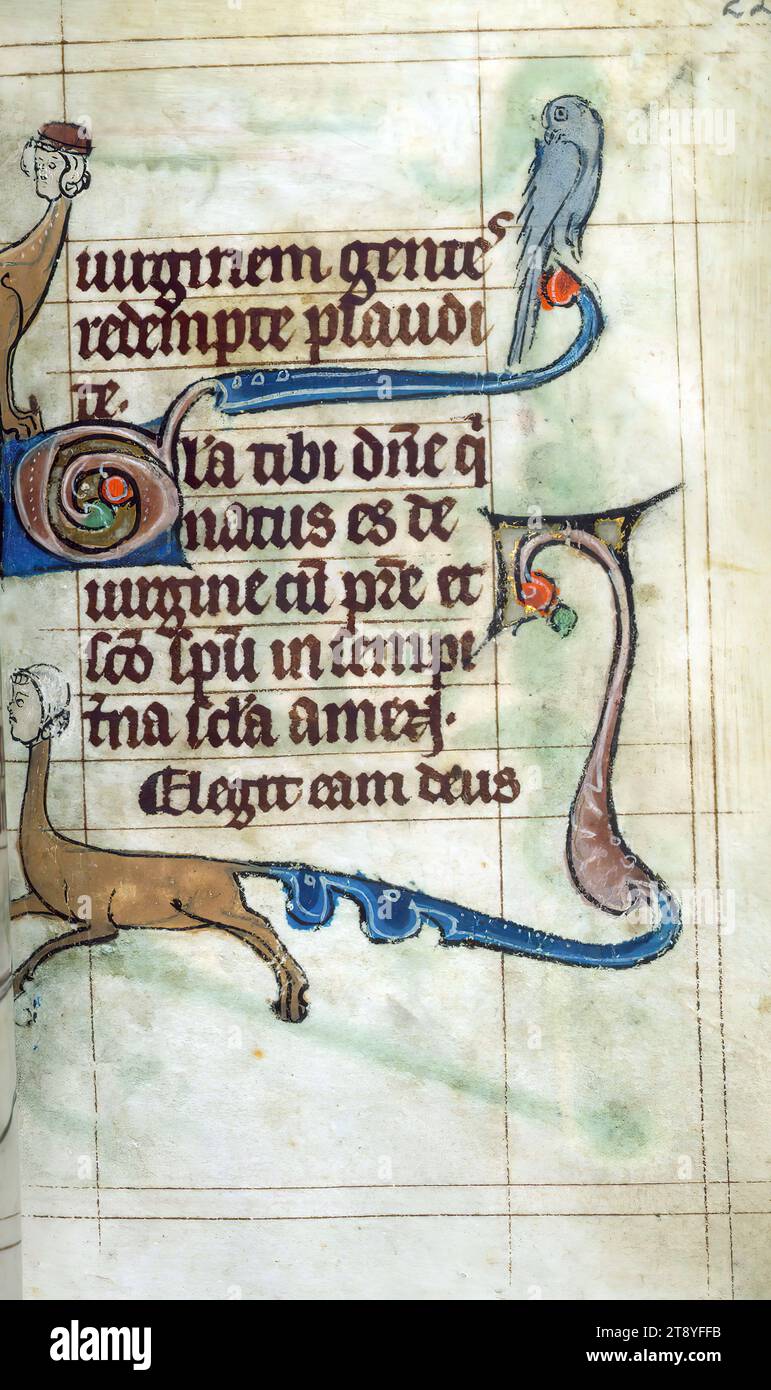 22
uirginem gentes
redempte plaudi
te.
Gl'a tibi dn̄e q̇
natus es de
uirgine cū pr̄e et
sc̄o sp̄u in sempi
t̄na sc̄l'a amen.
Elegit eam deus
alamy
Image ID: 2T8YFFB
www.alamy.com